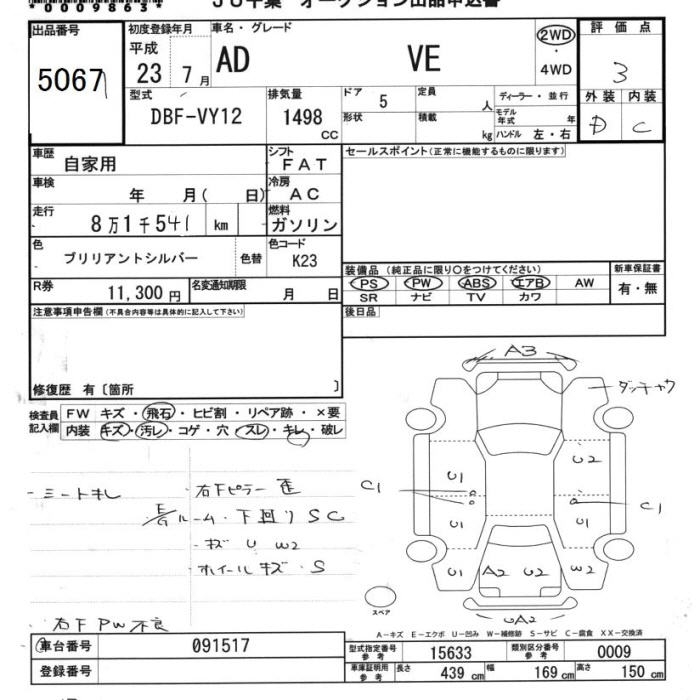 *0009863*
JU千葉 オークション出品申込書
出品番号 初度登録年月 車名・グレード 評価点
5067 平成 23年 7月 AD VE 2WD・4WD 3
型式 排気量 ドア 定員 ディーラー・並行 外装 内装
DBF-VY12 1498 CC 5 人 モデル年式 年 D C
形状 積載 kg ハンドル 左・右
車歴 自家用 シフト FAT セールスポイント(正常に機能するものに限ります)
車検 年 月( 日) 冷房 AC
走行 8万1千541 km 燃料 ガソリン
色 ブリリアントシルバー 色替 色コード K23
装備品(純正品に限り○をつけてください) 新車保証書
R券 11,300円 名変通知期限 月 日
PS PW ABS エアB AW 有・無
SR ナビ TV カワ
注意事項申告欄(不具合内容等は具体的に記入して下さい) 後日品
修復歴 有〔箇所 〕
検査員記入欄 FW キズ・飛石・ヒビ割・リペア跡・×要
内装 キズ・汚レ・コゲ・穴・スレ・キレ・破レ
A3
ダッチャク
U1 U2
C1 C1
U1 U1
U1 A2 U2 W2
UA2
スペア
・シートキレ ・右下ピラー歪
E/Gルーム・下回りSC
・キズ U W2
・ホイールキズ・S
右下PW不良
A－キズ E－エクボ U－凹み W－補修跡 S－サビ C－腐食 XX－交換済
車台番号 091517 型式指定番号 参考 15633 類別区分番号 参考 0009
登録番号 車庫証明用 参考 長さ 439 cm 幅 169 cm 高さ 150 cm